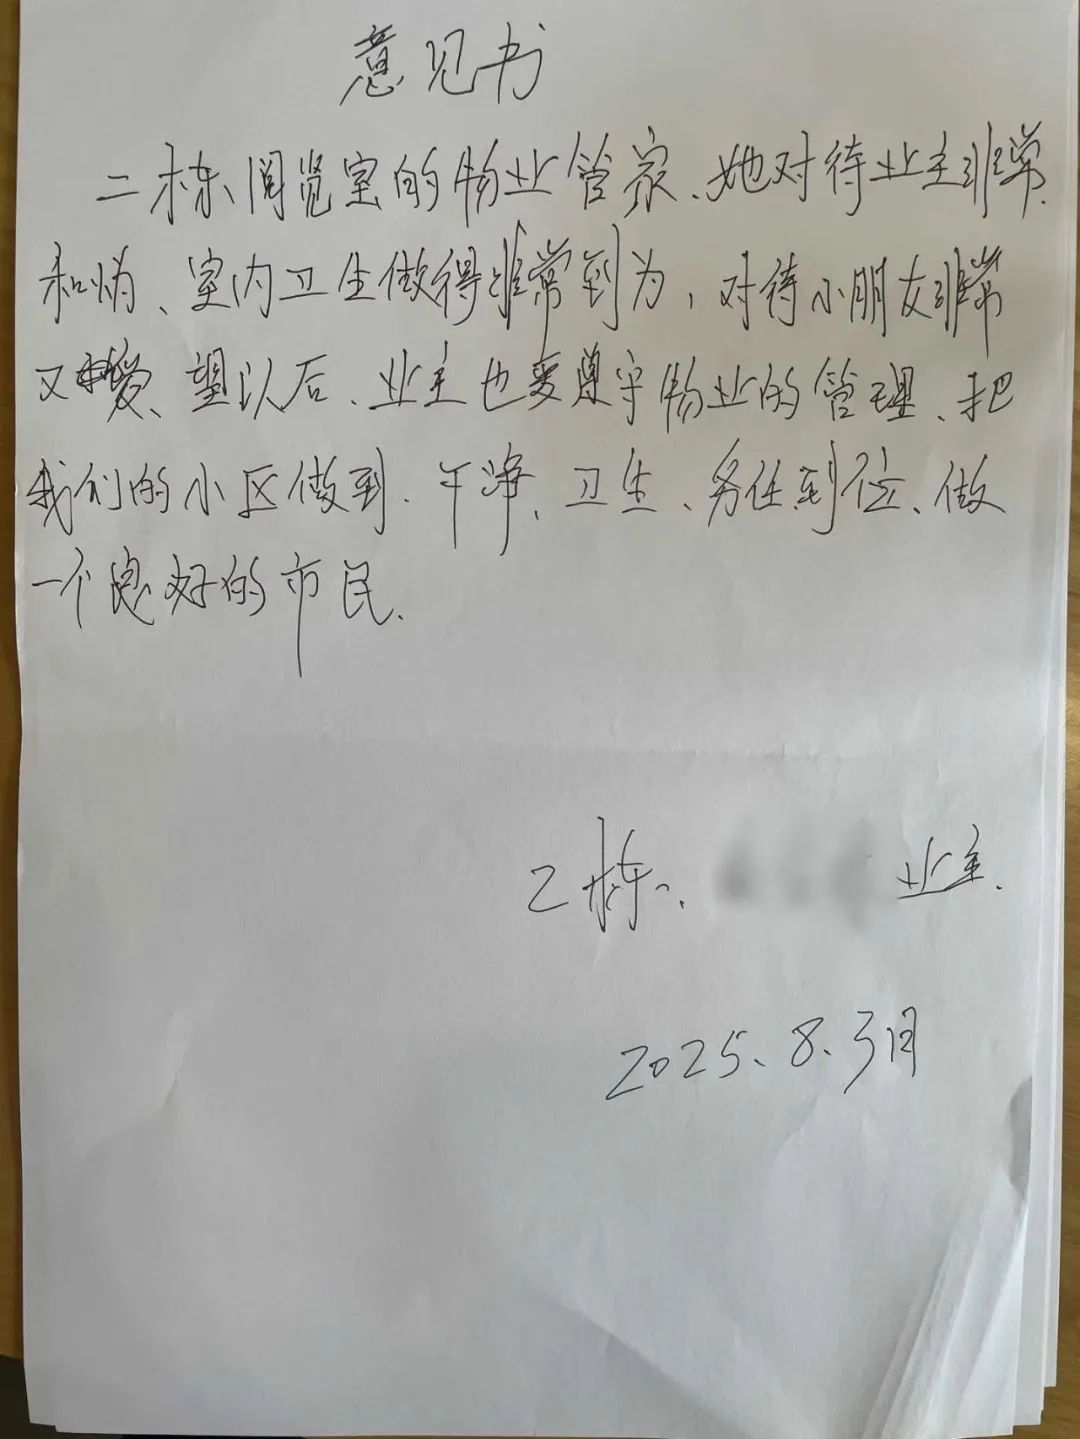 意见书
二栋阅览室的物业管家、她对待业主非常
和 、室内卫生做得非常到为,对待小朋友非常
又爱、望以后、业主也要遵守物业的管理、把
我们的小区做到.干净、卫生、务任到位、做
一个良好的市民.
2栋、 业主.
2025、8、3日